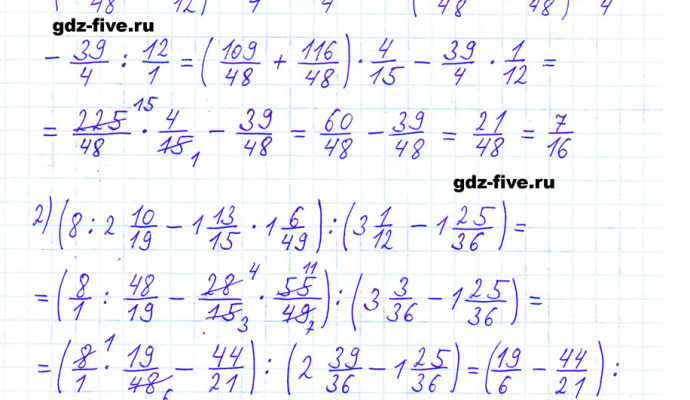 48 12) 4 4 (48 48) 4
gdz-five.ru
- 39/4 : 12/1 = (109/48 + 116/48) · 4/15 - 39/4 · 1/12 =
= 225/48 15 · 4/15 1 - 39/48 = 60/48 - 39/48 = 21/48 = 7/16
gdz-five.ru
2) (8 : 2 10/19 - 1 13/15 · 1 6/49) : (3 1/12 - 1 25/36) =
= (8/1 : 48/19 - 28/15 4 3 · 55/49 11 7) : (3 3/36 - 1 25/36) =
= (8/1 1 · 19/48 6 - 44/21) : (2 39/36 - 1 25/36) = (19/6 - 44/21) :